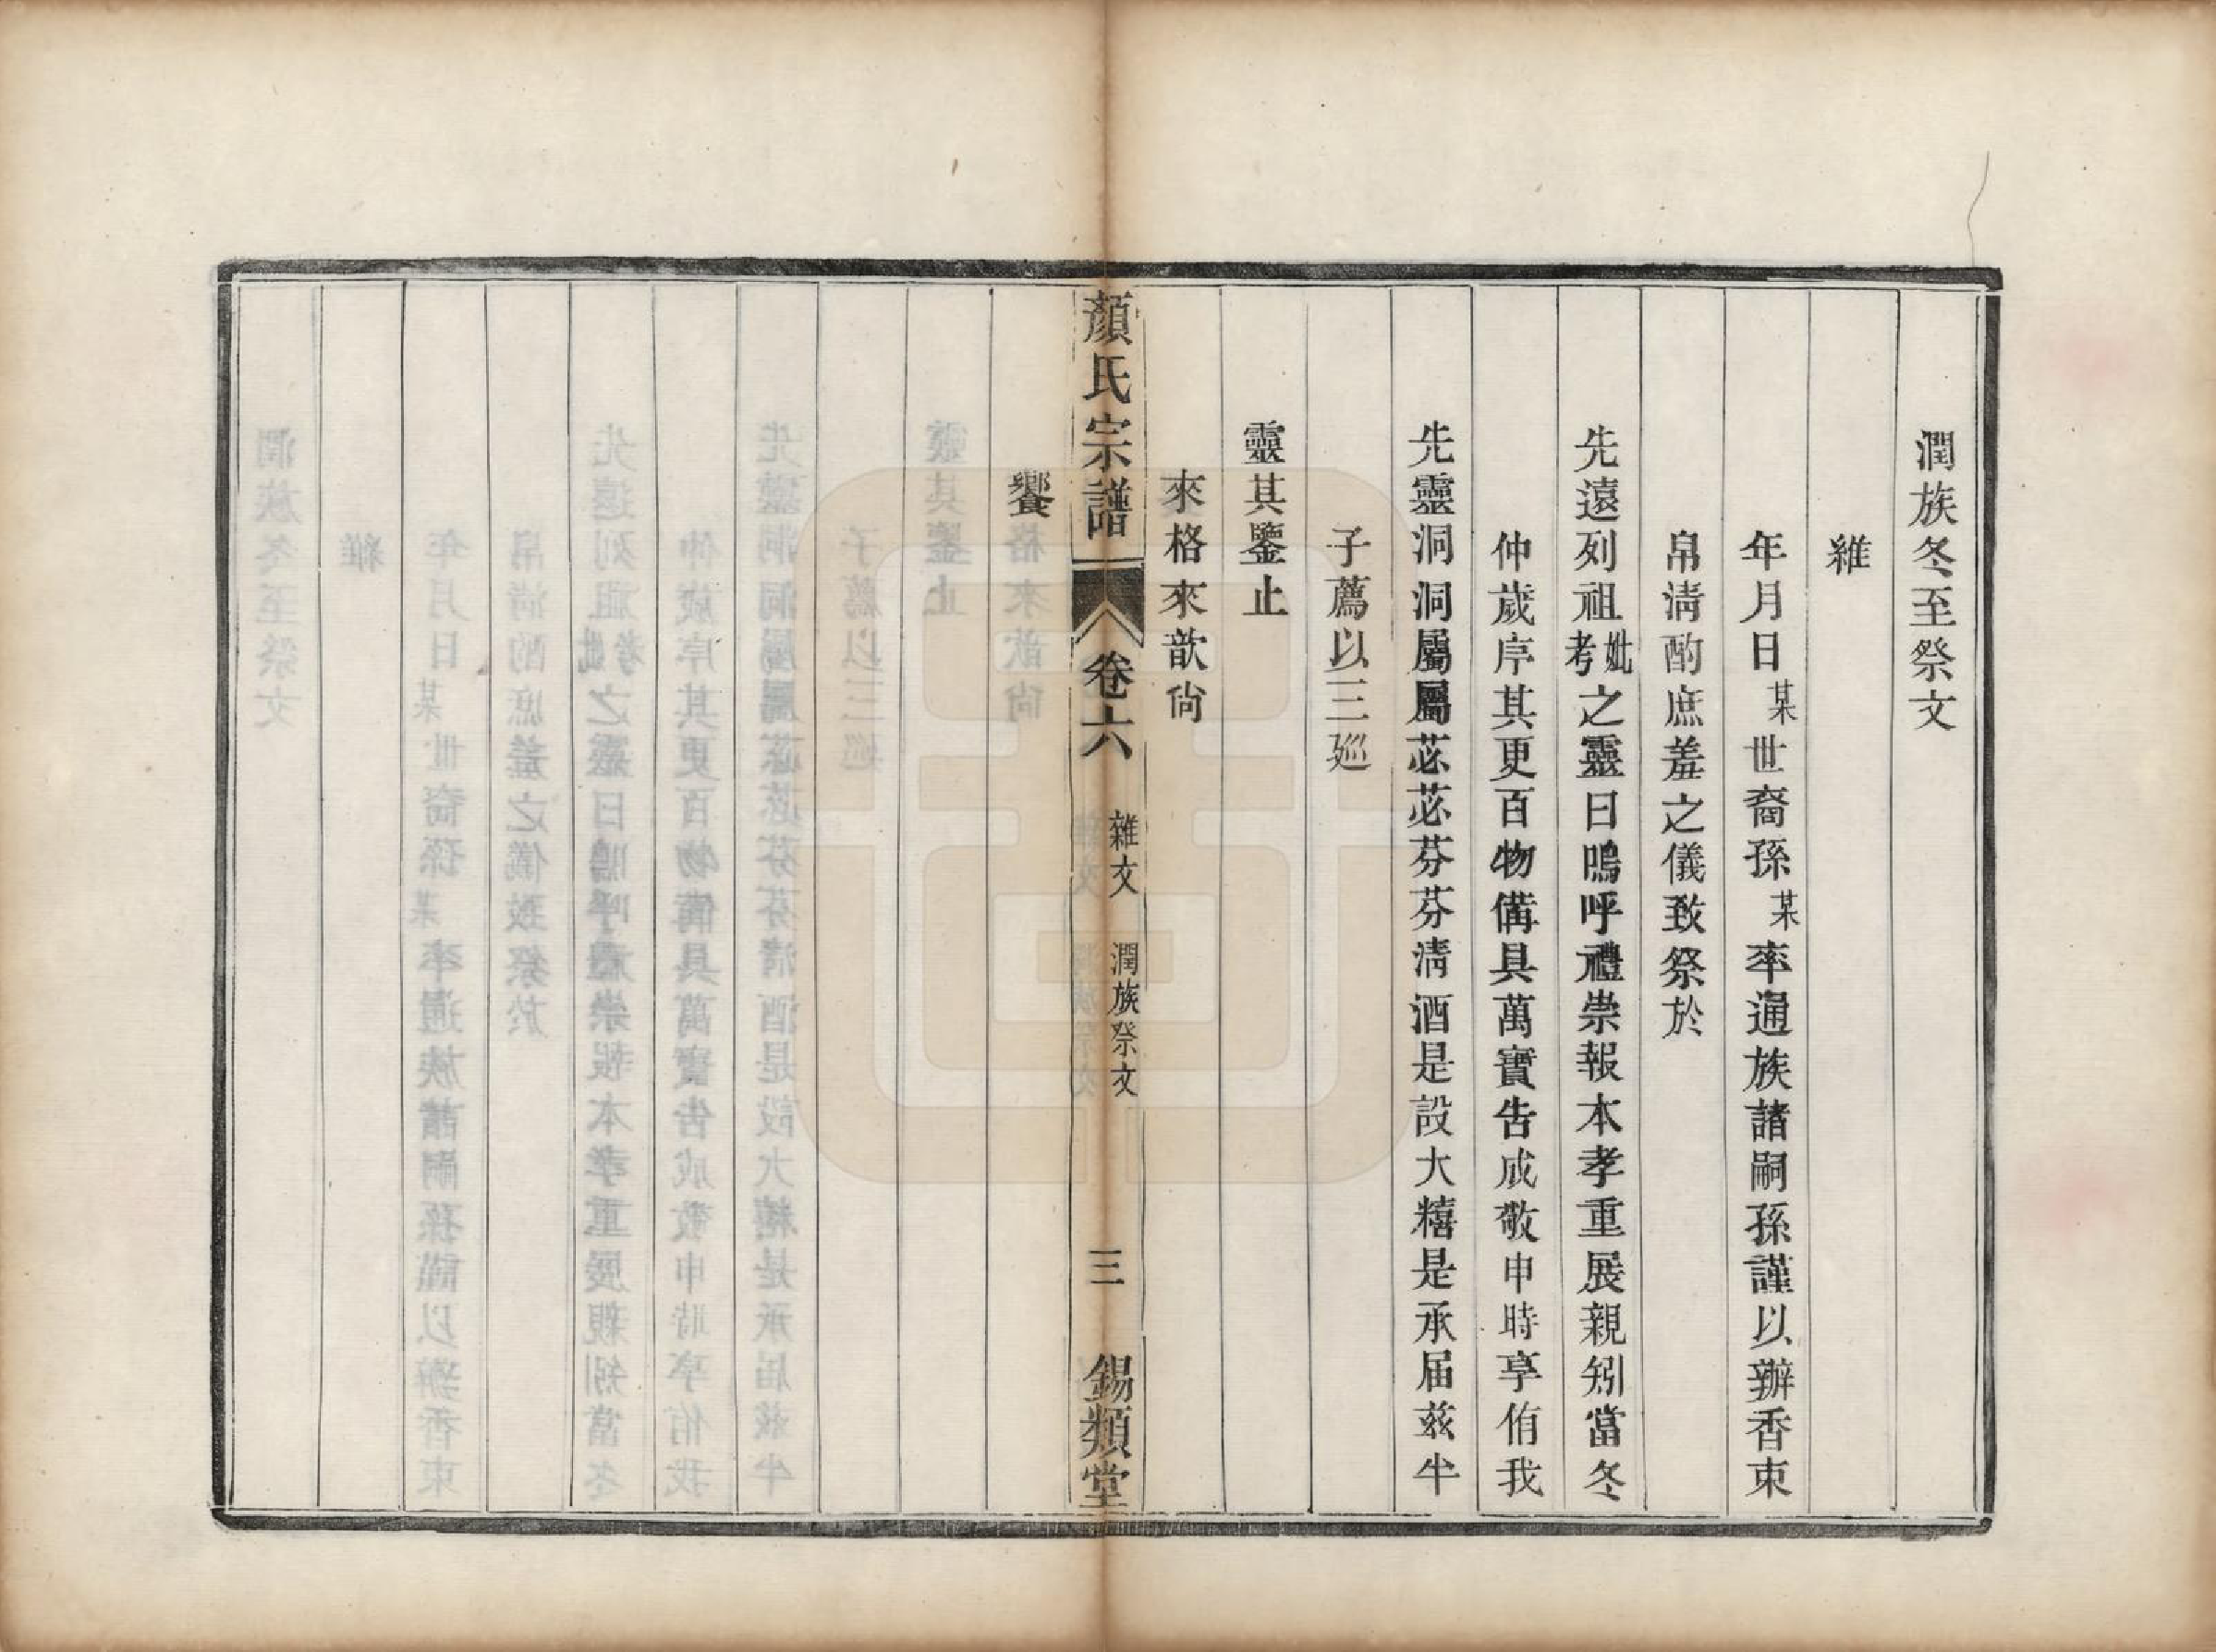 潤族冬至祭文
維
年月日某世裔孫某率通族諸嗣孫謹以辦香束
帛清酌庶羞之儀致祭於
先遠列祖妣考之靈曰嗚呼禮崇報本孝重展親矧當冬
仲歲序其更百物備具萬寶告成敬申時享侑我
先靈洞洞屬屬苾苾芬芬清酒是設大糦是承届兹半
子薦以三廵
靈其鑒止
來格來歆尙
顏氏宗譜
卷六
雜文
潤族祭文
三
錫類堂
饗